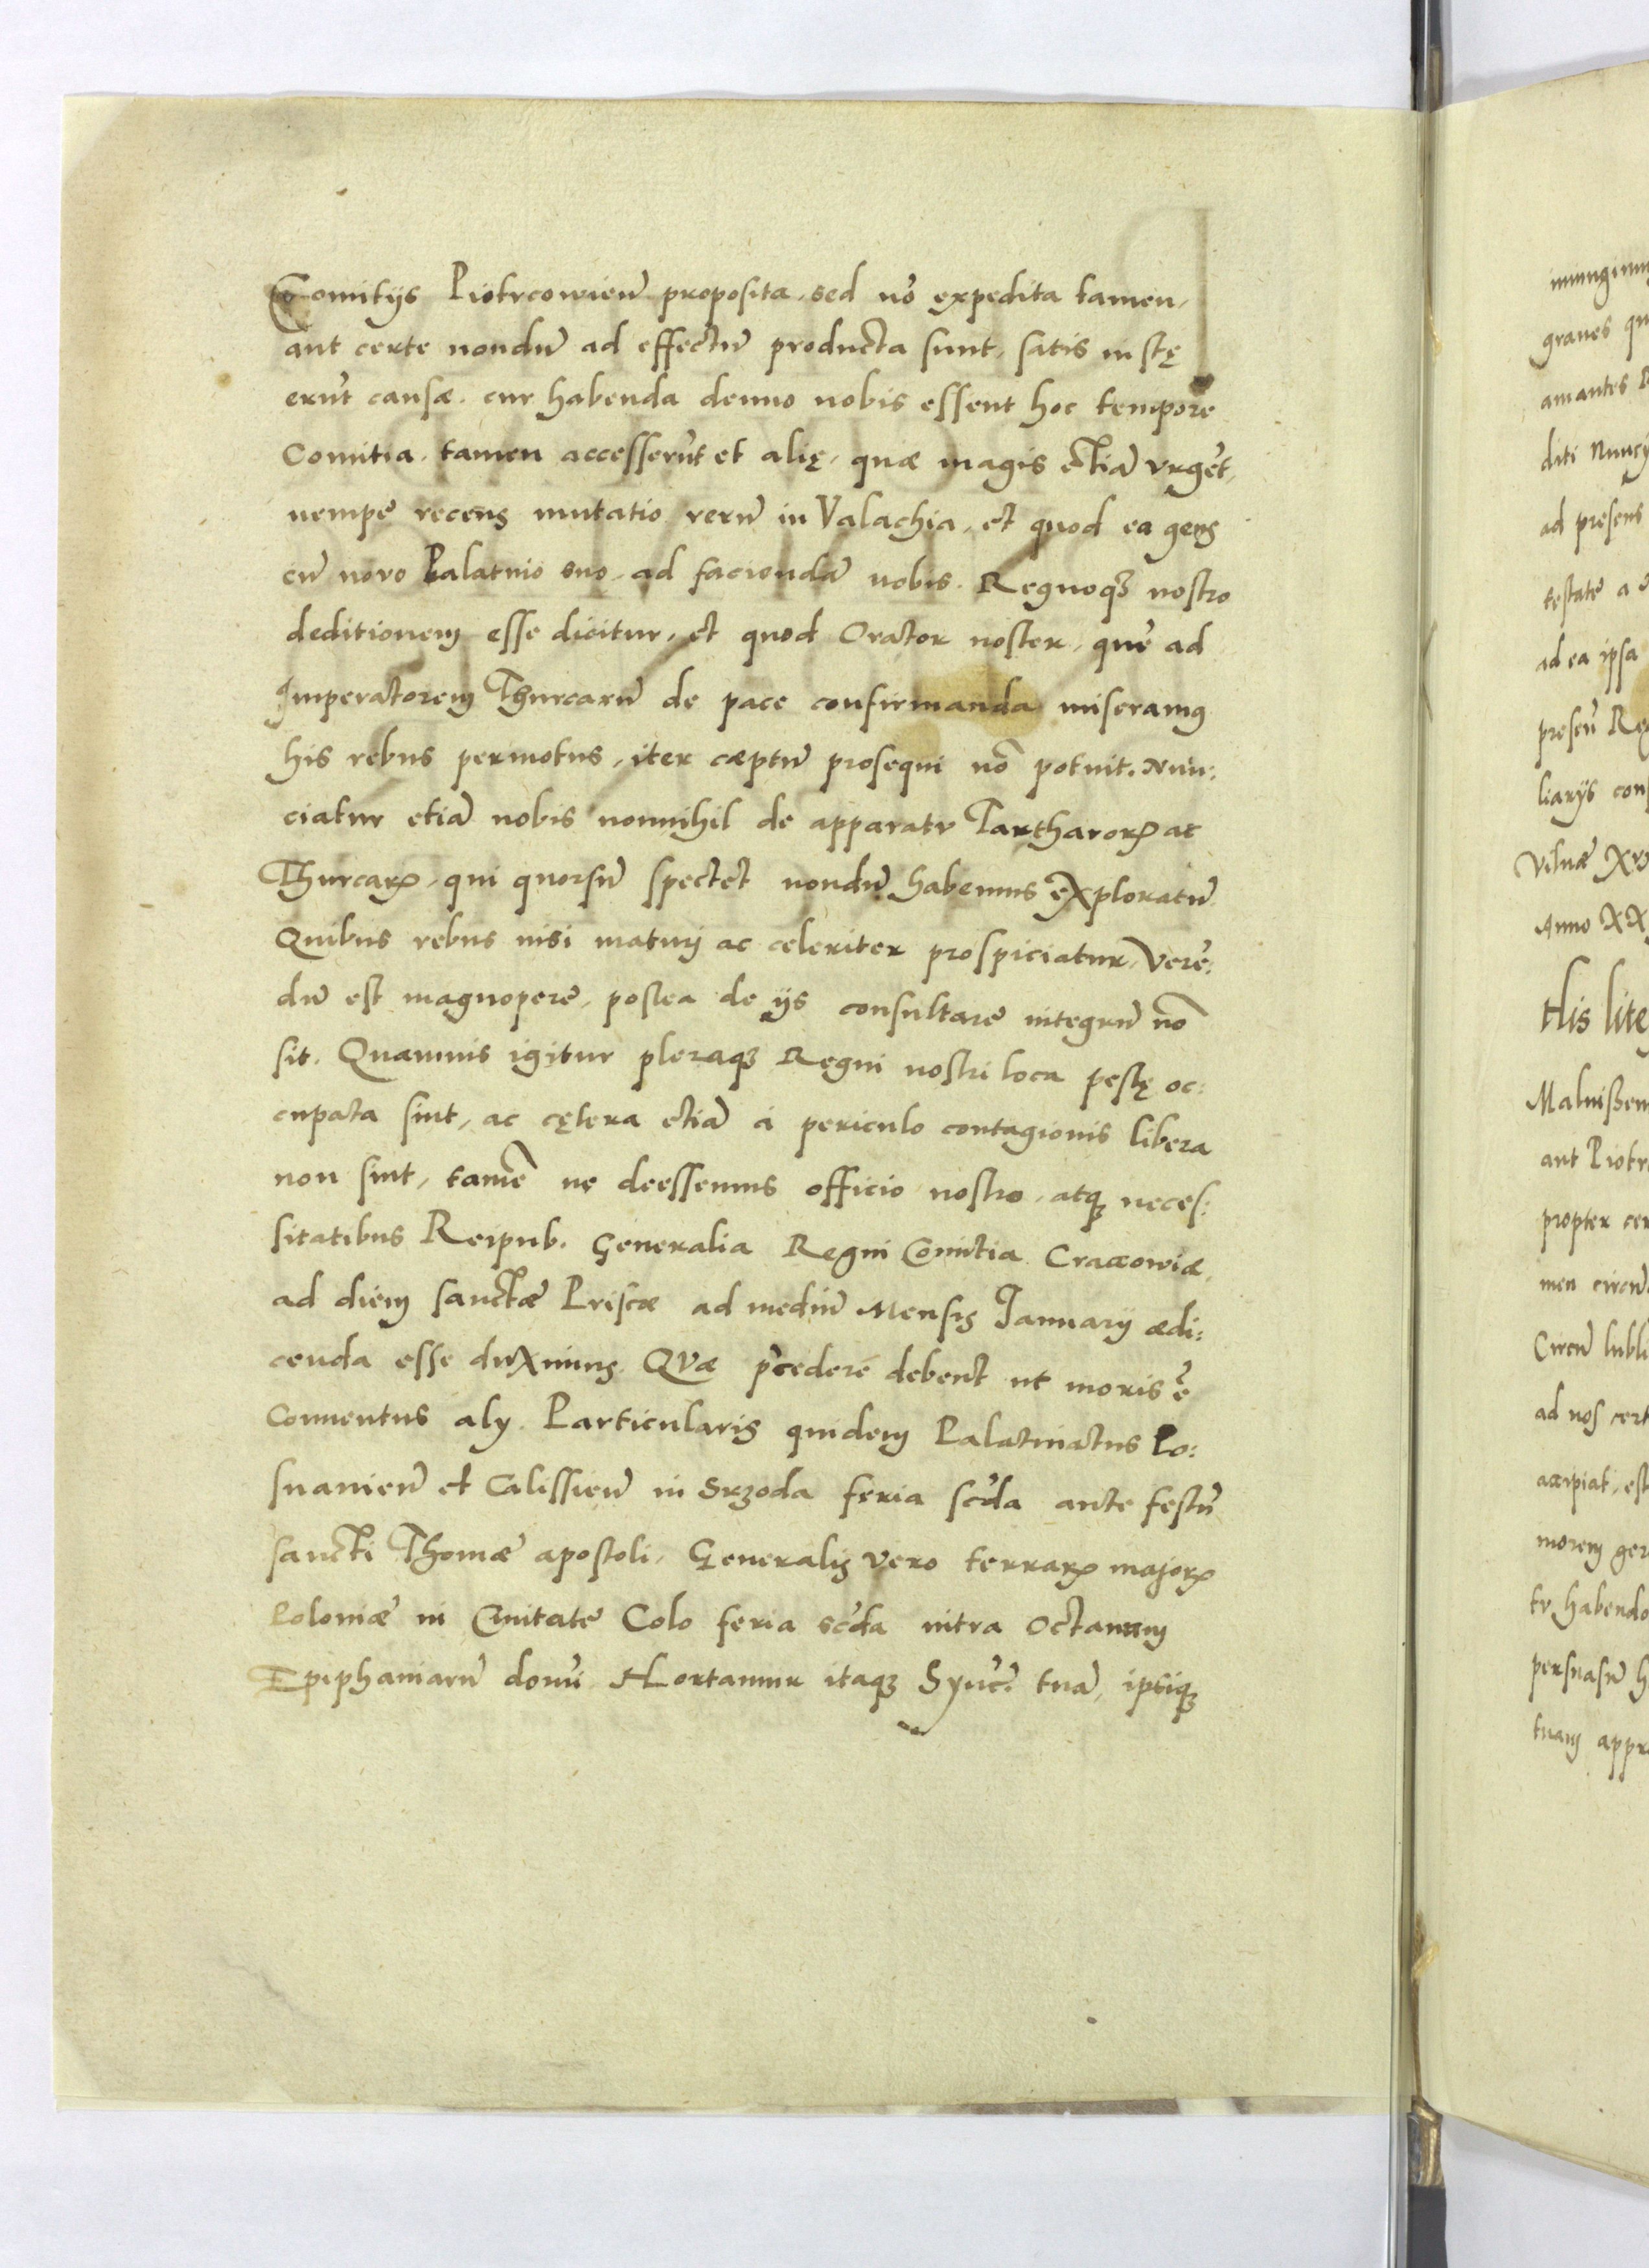 Comitijs Piotrcowien̄ proposita, sed nō expedita tamen,
aut certe nondū ad effectū producta sunt, satis iustę
erūt causæ, cur habenda denuo nobis essent hoc tempore
Comitia, tamen accesserūt et alię, quæ magis etiā vrgēt,
nempe recens mutatio rerū in Valachia, et quod ea gens
cū novo Palatino suo, ad faciendā nobis, Regnoqꝫ nostro
deditionem esse dicitur, et quod Orator noster, quē ad
Imperatorem Thurcarū de pace confirmanda miseramus
his rebus permotus, iter cæptū prosequi nō potuit. Nun:
ciatur etiā nobis nonnihil de apparatv Tartharorꝝ ac
Thurcarꝝ, qui quorsū spectēt nondū habemus exploratū
Quibus rebus nisi maturè ac celeriter prospiciatur, verē:
dū est magnopere, postea de ijs consultare integrū nō
sit. Quamuis igitur pleraqꝫ Regni nostri loca pestę oc:
cupata sint, ac cętera etiā à periculo contagionis libera
non sint, tamē ne deessemus officio nostro, atqꝫ neces:
sitatibus Reipub. Generalia Regni Comitia Cracowiæ,
ad diem sanctæ Priscæ ad mediū Mensis Januarij ædi:
cenda esse duximus. Qvæ p̄cedere debent ut moris ē
Conuentus alij. Particularis quidem Palatinatus Po:
snanien̄ et Calissien̄ in Srzoda feria scd̄a ante festū
sancti Thomæ apostoli, Generalis vero terrarꝝ majorꝝ
Poloniæ in Ciuitate Colo feria scd̄a intra Octauam
Epiphaniarū domī. Hortamur itaqꝫ Syncē. tuā, ip̄iqꝫ
graues qu
amantes
diti Nuncij
ad presens
testate a
ad ea ipsa
presen̄
liarijs con
Vilnæ
Anno
His lite
aut Piotr
propter cer
men circū
Circū lubli
ad nos cert
accipiat, est
morem ger
tv habendo
persuasū h
tuam appr